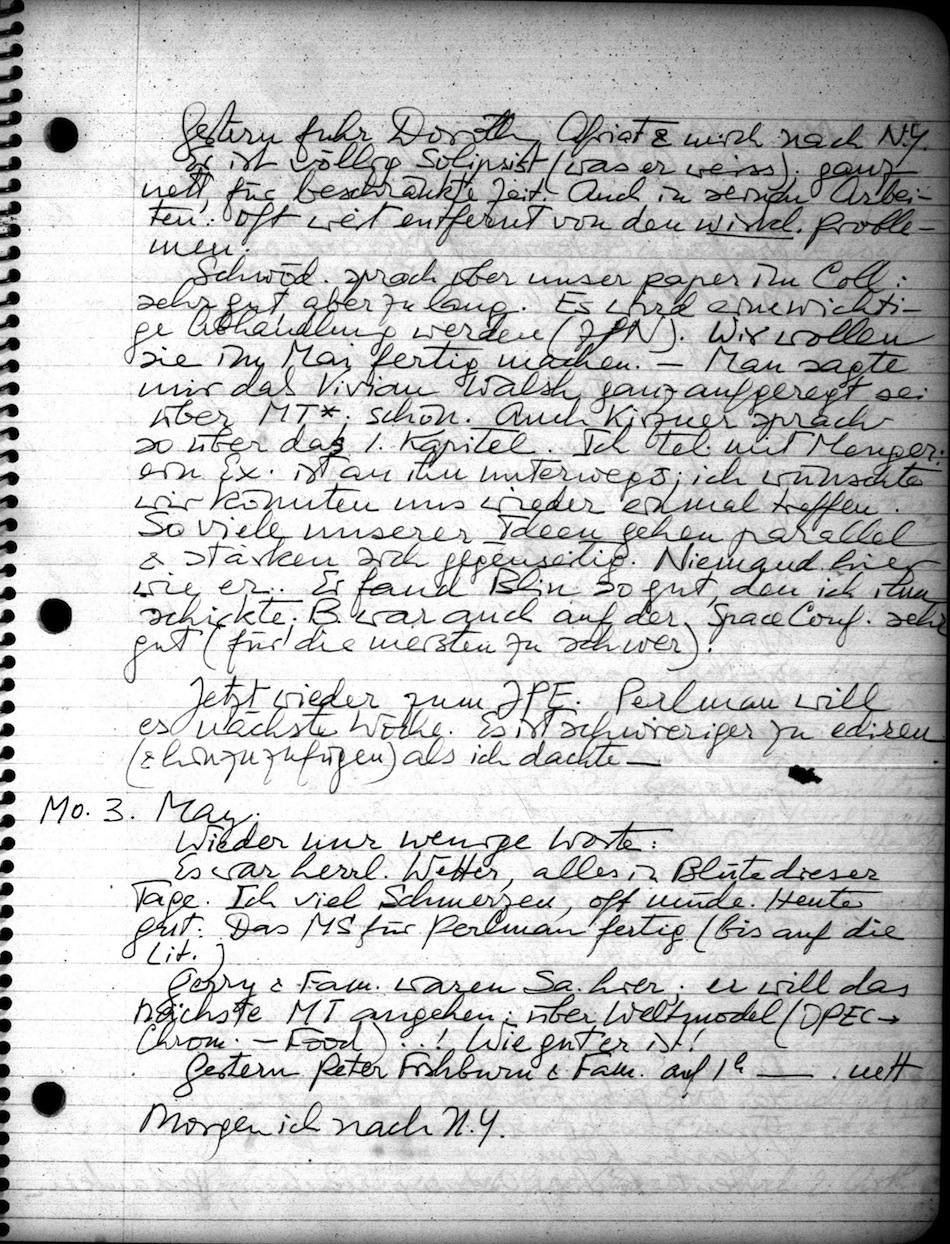 Gestern fuhr Doroth. Afriat & mich nach N.Y.
Er ist völlig Solipsist (was er weiss). ganz
nett, für beschränkte Zeit. Auch in seinen Arbei-
ten: oft weit entfernt von den wirkl. Proble-
men.
Schwöd. sprach über unser paper im Coll:
sehr gut aber zu lang. Es wird eine wichti-
ge Abhandlung werden (). Wir wollen
sie im Mai fertig machen. — Man sagte
mir daß Vivian Walsh ganz aufgeregt sei
über MT*; schön. Auch Kirzner sprach
so über das 1. Kapitel. Ich tel. mit Menger:
ein Ex. ist an ihn unterwegs; ich wünschte
wir könnten uns wieder einmal treffen.
So viele unserer Ideen gehen parallel
& stärken sich gegenseitig. Niemand hier
wie er.. Er fand Blin so gut, den ich ihm
schickte; B. war auch auf der Space Conf. sehr
gut (für die meisten zu schwer).
Jetzt wieder zum JPE. Perlman will
es nächste Woche. Es ist schwieriger zu ediren
(& hinzuzufügen) als ich dachte —
Mo. 3. May.
Wieder nur wenige Worte:
Es war herrl. Wetter, alles in Blüte dieser
Tage. Ich viel Schmerzen, oft müde. Heute
gut. Das MS für Perlman fertig (bis auf die
Lit.)
Gerry & Fam. waren Sa. hier; er will das
nächste MT angehen: über Weltmodel (OPEC→
Chrom. – Food) ..! Wie gut er ist!
Gestern Peter Fishburn & Fam. auf 1h — . nett
Morgen ich nach N.Y.